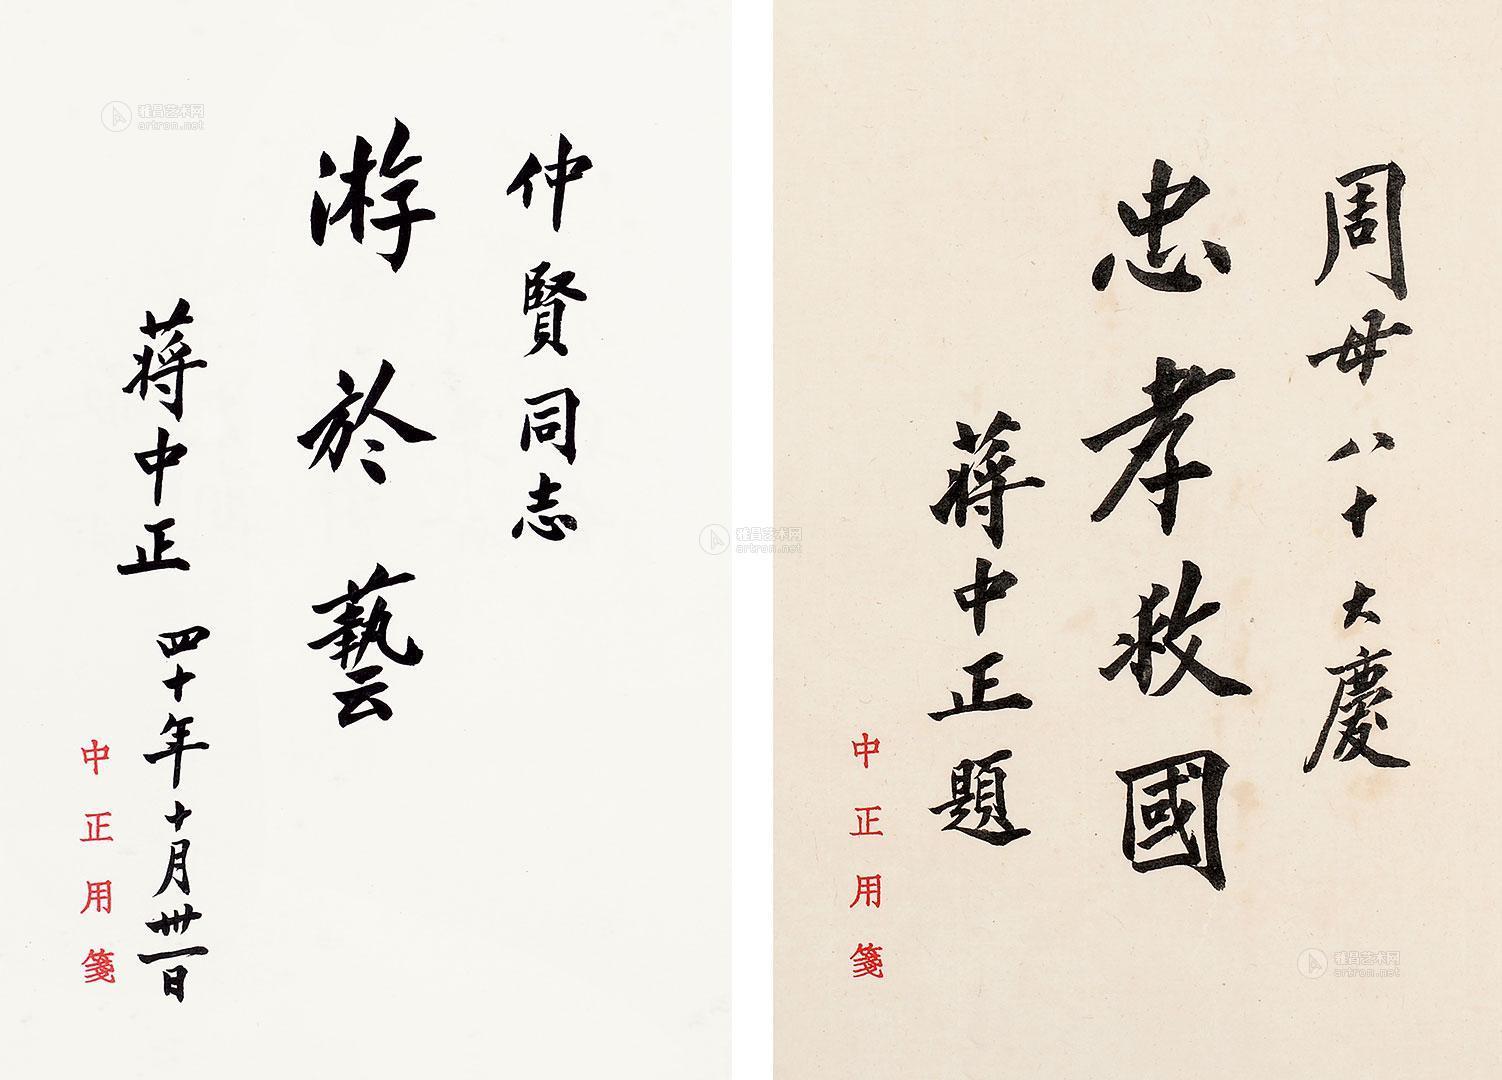 仲賢同志
游於藝
蔣中正 四十年十月卅一日
中正用箋
周母八十大慶
忠孝救國
蔣中正題
中正用箋
雅昌艺术网
artron.net
雅昌艺术网
artron.net
雅昌艺术网
artron.net